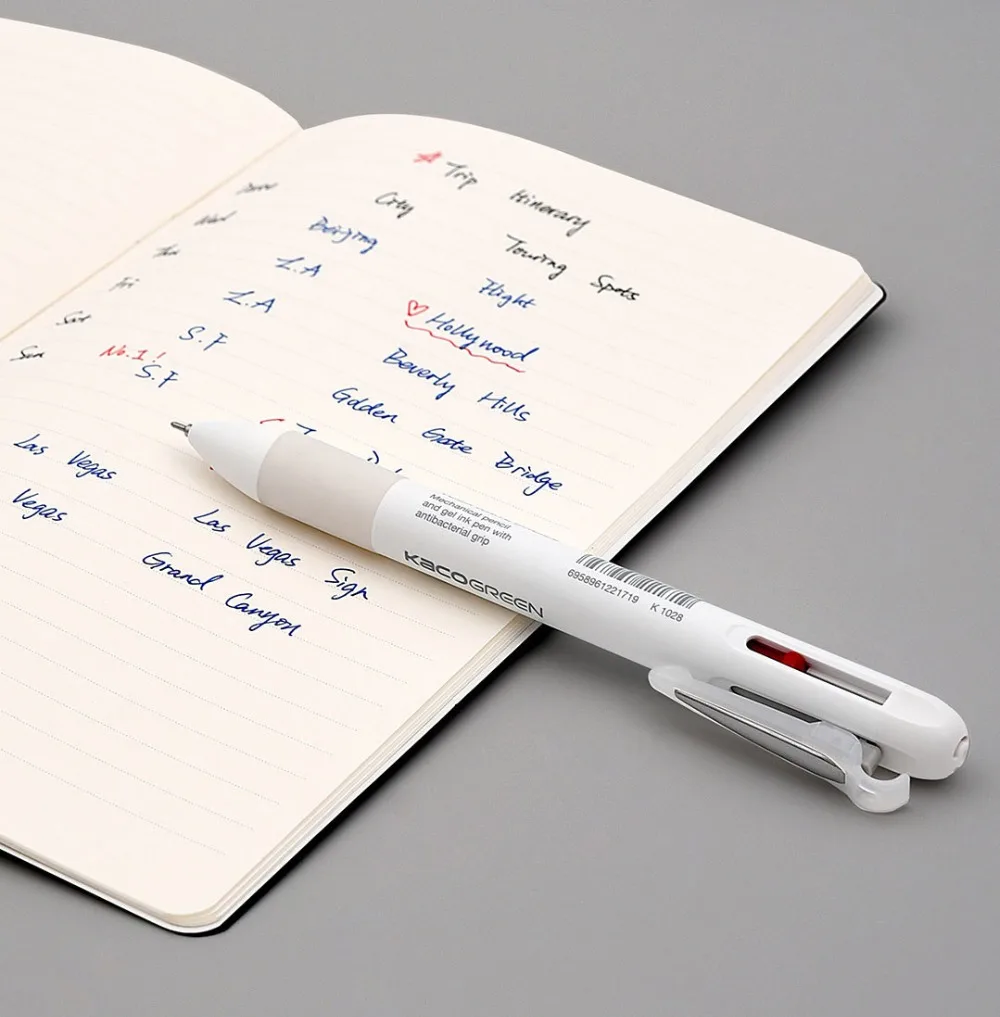 ☆ Trip Itinerary
City Touring Spots
Wed Beijing Flight
Thu L.A ♡ Hollywood
Fri L.A Beverly Hills
Sat S.F Golden Gate Bridge
Sun No.1! S.F
Las Vegas Las Vegas Sign
Vegas Grand Canyon
Mechanical pencil
and gel ink pen with
antibacterial grip
KACOGREEN
6958961221719 K 1028